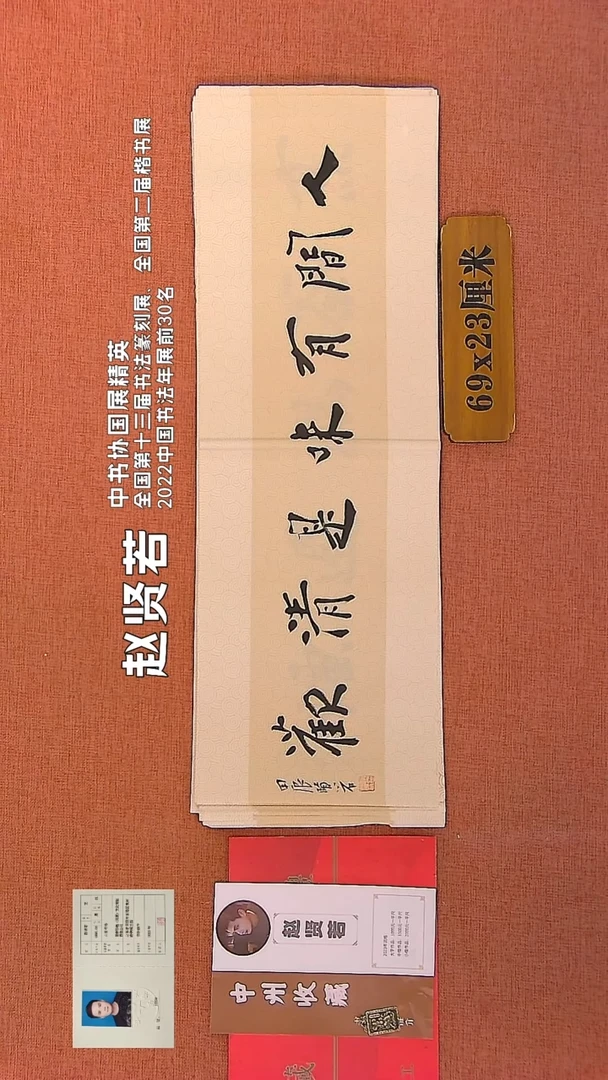 赵贤若
中书协国展精英
全国第十三届书法篆刻展、全国第二届楷书展
2022中国书法年展前30名
人間有味是清歡
69x23厘米
赵贤若
中州收藏
藏